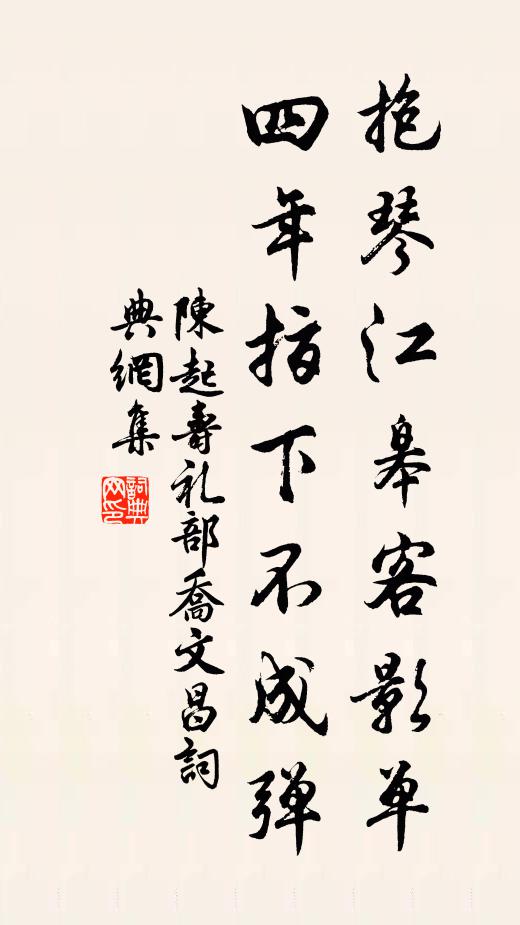 抱琴江皋客影单
四年指下不成弹
陳起壽礼部喬文昌詞
典網集
詞典网印